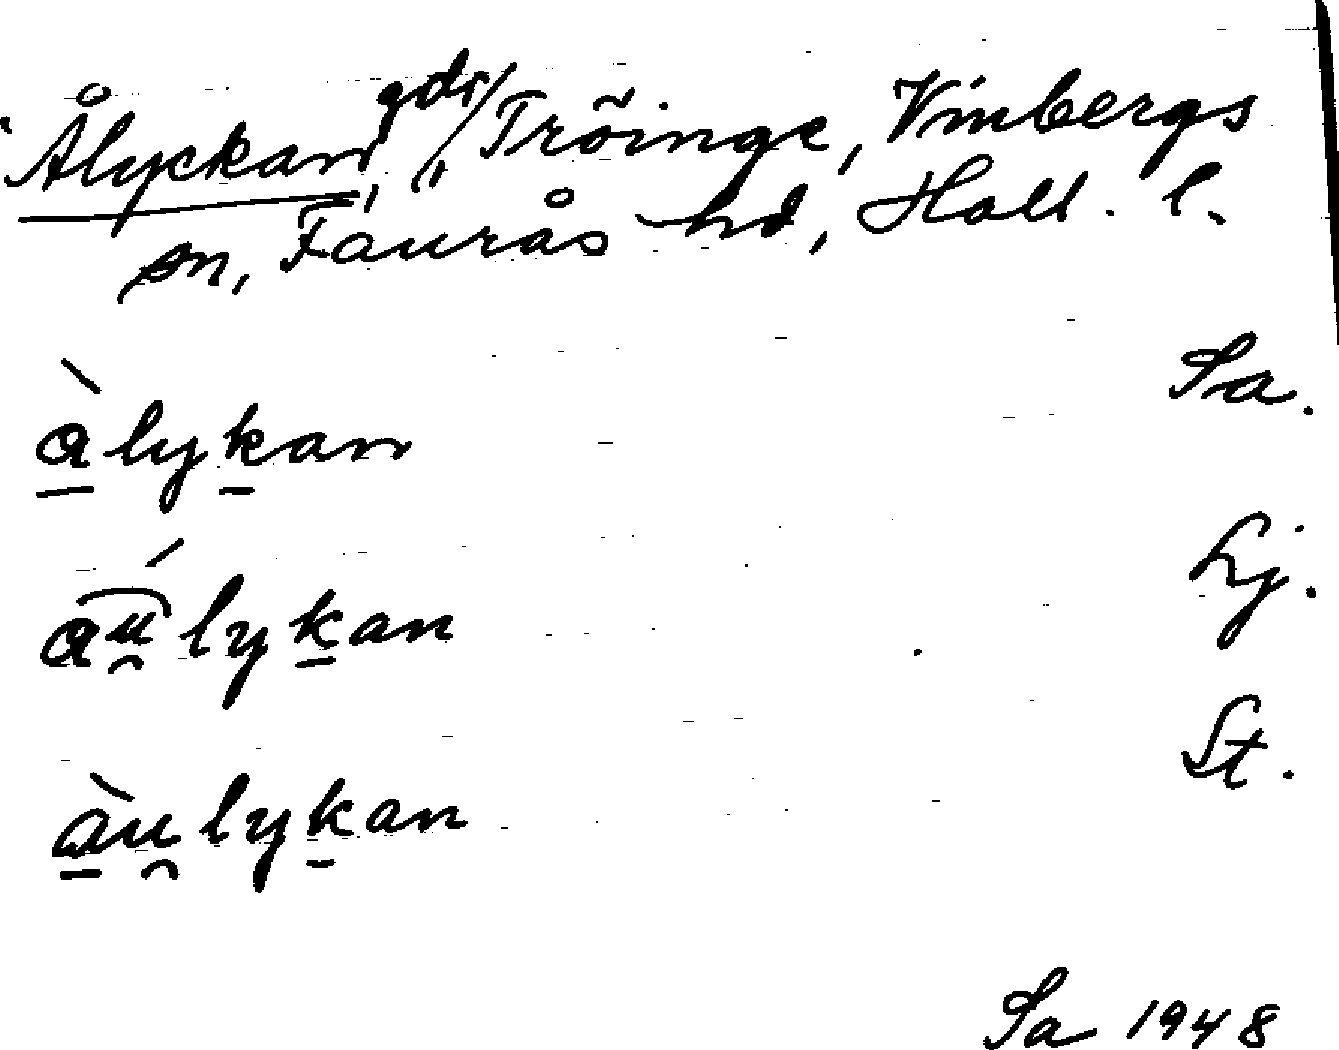 Ålyckan, gds/ Tröinge, Vinbergs
sn, Faurås hd, Hall. l.
àlykan Sa.
aúlykan Lj.
àulykan St.
Sa 1948